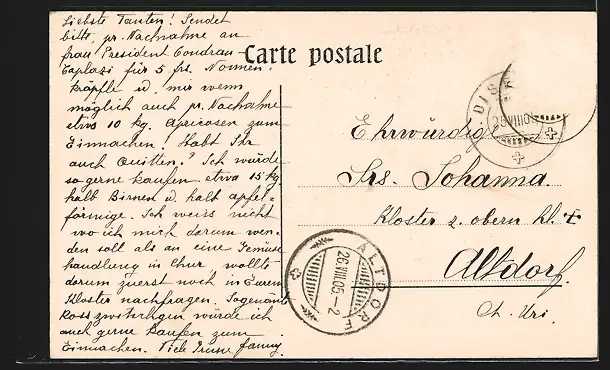 Liebste Tanten! Sendet
bitte pr. Nachnahme an
frau President Condrau-
Caplazi für 5 frs. Nonnen-
kräpfle u. mir wenn
möglich auch pr. Nachnahme
etwa 10 kg. Apricosen zum
Einmachen. Habt Ihr
auch Quitten? Ich würde
so gerne kaufen etwa 15 kg
halb Birnen u. halb apfel-
förmige. Ich weiss nicht
wo ich mich darum wen-
den soll als an eine Gemüse
handlung in Chur, wollte
darum zuerst noch in Eurem
Kloster nachfragen. Sogenannt
würde ich
auch gerne kaufen zum
Einmachen. Viele Grüsse fanny.
Carte postale
DIS
25 VIII 0
Ehrwürdig
Srs. Johanna.
Kloster z. obern hl. +
Altdorf.
Ct. Uri.
ALTDORF
26.VIII.05.-2